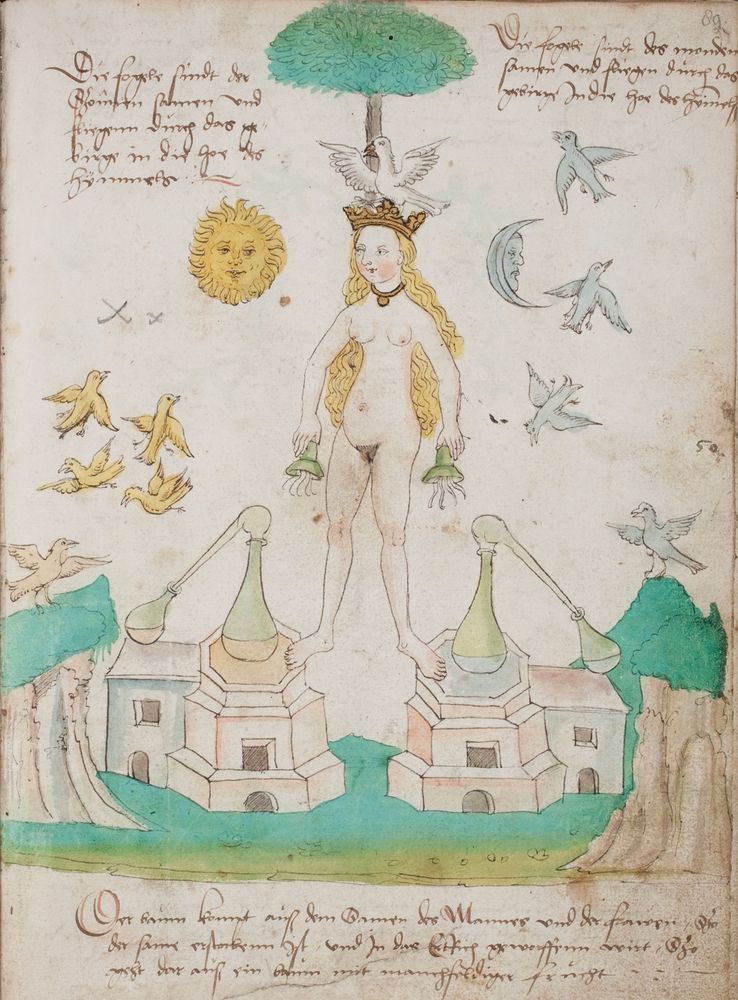 Die fogele sindt der
Sonnen samen vnd
fliegenn durch das ge-
birge in die hoe des
hymmels
89
Die fogele sindt des monden
samen vnd fliegen durch das
gebirge In die hoe des hymmels
50
Der baum kompt auß dem Samen des Mannes vnd der frawen, So
der same erstorbenn Ist, vnd In das Ertrich geworffenn wirt, So
geht dar auß ein baum mit manchfeldiger frucht